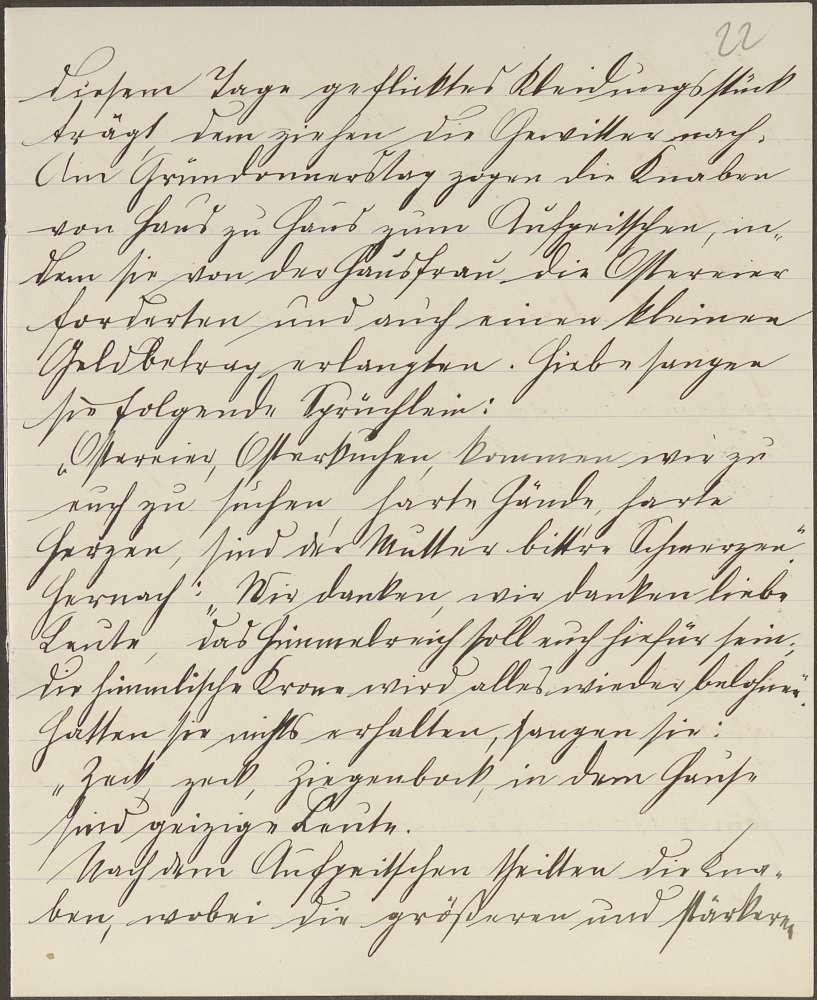 22
diesem Tage geflicktes Kleidungsstück
trägt, dem ziehen die Gewitter nach.
Am Gründonnerstag zogen die Knaben
von Haus zu Haus zum Aufpeitschen, in-
dem sie von der Hausfrau die Ostereier
forderten und auch einen kleinen
Geldbetrag erlangten. Hiebe sangen
sie folgende Sprüchlein:
„Ostereier, Osterkuchen, kommen wir zu
euch zu suchen, harte Hände, harte
Herzen, sind der Mutter bittre Schmerzen“.
Hernach: „Wir danken, wir danken liebe
Leute, das Himmelreich soll euch hiefür sein,
die himmlische Krone wird alles wieder belohnen“.
Hatten sie nichts erhalten, sangen sie:
„Zeck, zeck, Ziegenbock, in dem Hause
sind geizige Leute.
Nach dem Aufpeitschen theilten die Kna-
ben, wobei die größeren und stärkeren